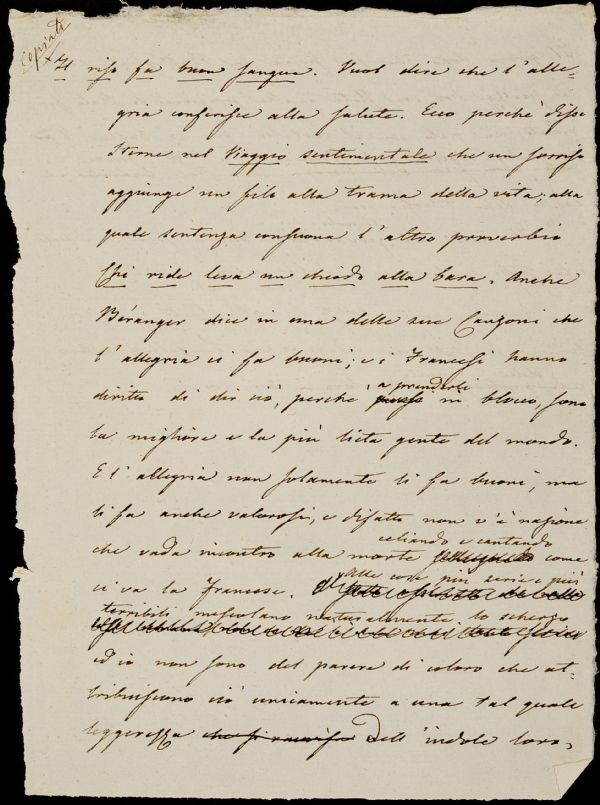 Copiato
× Il riso fa buon sangue. Vuol dire che l'alle-
gria conferisce alla salute. Ecco perchè disse
Sterne nel Viaggio sentimentale che un sorriso
aggiunge un filo alla trama della vita; alla
quale sentenza consuona l'altro proverbio
Chi ride leva un chiodo alla bara. Anche
Béranger dice in una delle sue Canzoni che
l'allegria ci fa buoni; e i Francesi hanno
diritto di dir ciò, perchè
a prenderli
in blocco, sono
la migliore e la più lieta gente del mondo.
E l'allegria non solamente li fa buoni, ma
li fa anche valorosi, e difatto non v'è nazione
celiando e cantando
che vada incontro alla morte come
ci va la Francese.
Alle cose più serie e più
terribili mescolano naturalmente lo scherzo
ed io non sono del parere di coloro che at-
tribuiscono ciò unicamente a una tal quale
leggerezza dell'indole loro,